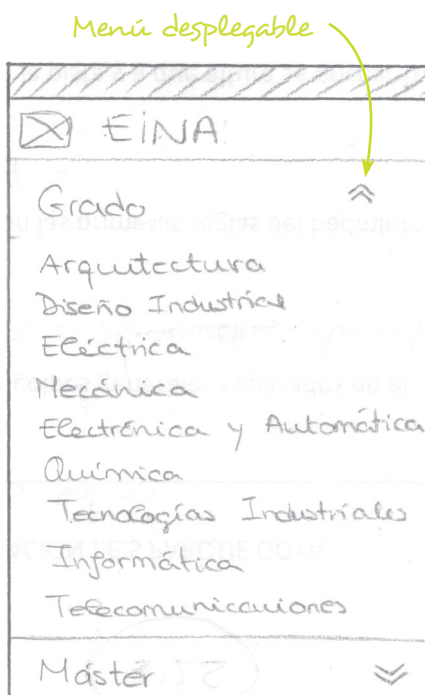 Menú desplegable
EINA
Grado
Arquitectura
Diseño Industrial
Eléctrica
Mecánica
Electrónica y Automática
Química
Tecnologías Industriales
Informática
Telecomunicaciones
Máster